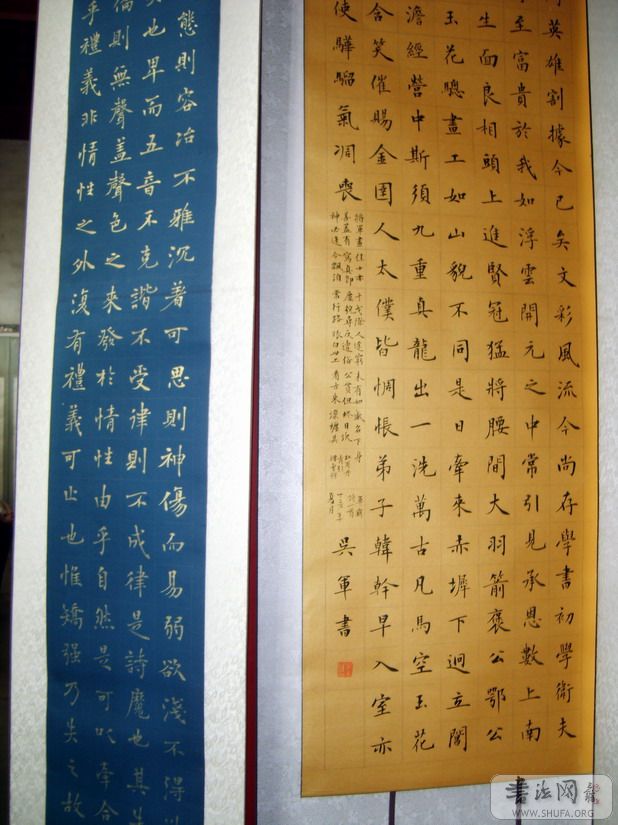 英雄割據今已矣文彩風流今尚存學書初學衛夫
至富貴於我如浮雲開元之中常引見承恩數上南
生面良相頭上進賢冠猛將腰間大羽箭褒公鄂公
玉花驄畫工如山貌不同是日牽來赤墀下迥立閶
澹經營中斯須九重真龍出一洗萬古凡馬空玉花
含笑催賜金圉人太僕皆惆悵弟子韓幹早入室亦
使驊騮氣凋喪
干戈際人途窮未有如盛名下身
吳軍書
態則容冶不雅沉著可思則神傷而易弱欲淺不得
也卑而五音不克諧不受律則不成律是詩魔也其
則無聲蓋聲色之來發於情性由乎自然是可以牽合
乎禮義非情性之外復有禮義可止也惟矯强乃失之故
書法网
WWW.SHUFA.ORG